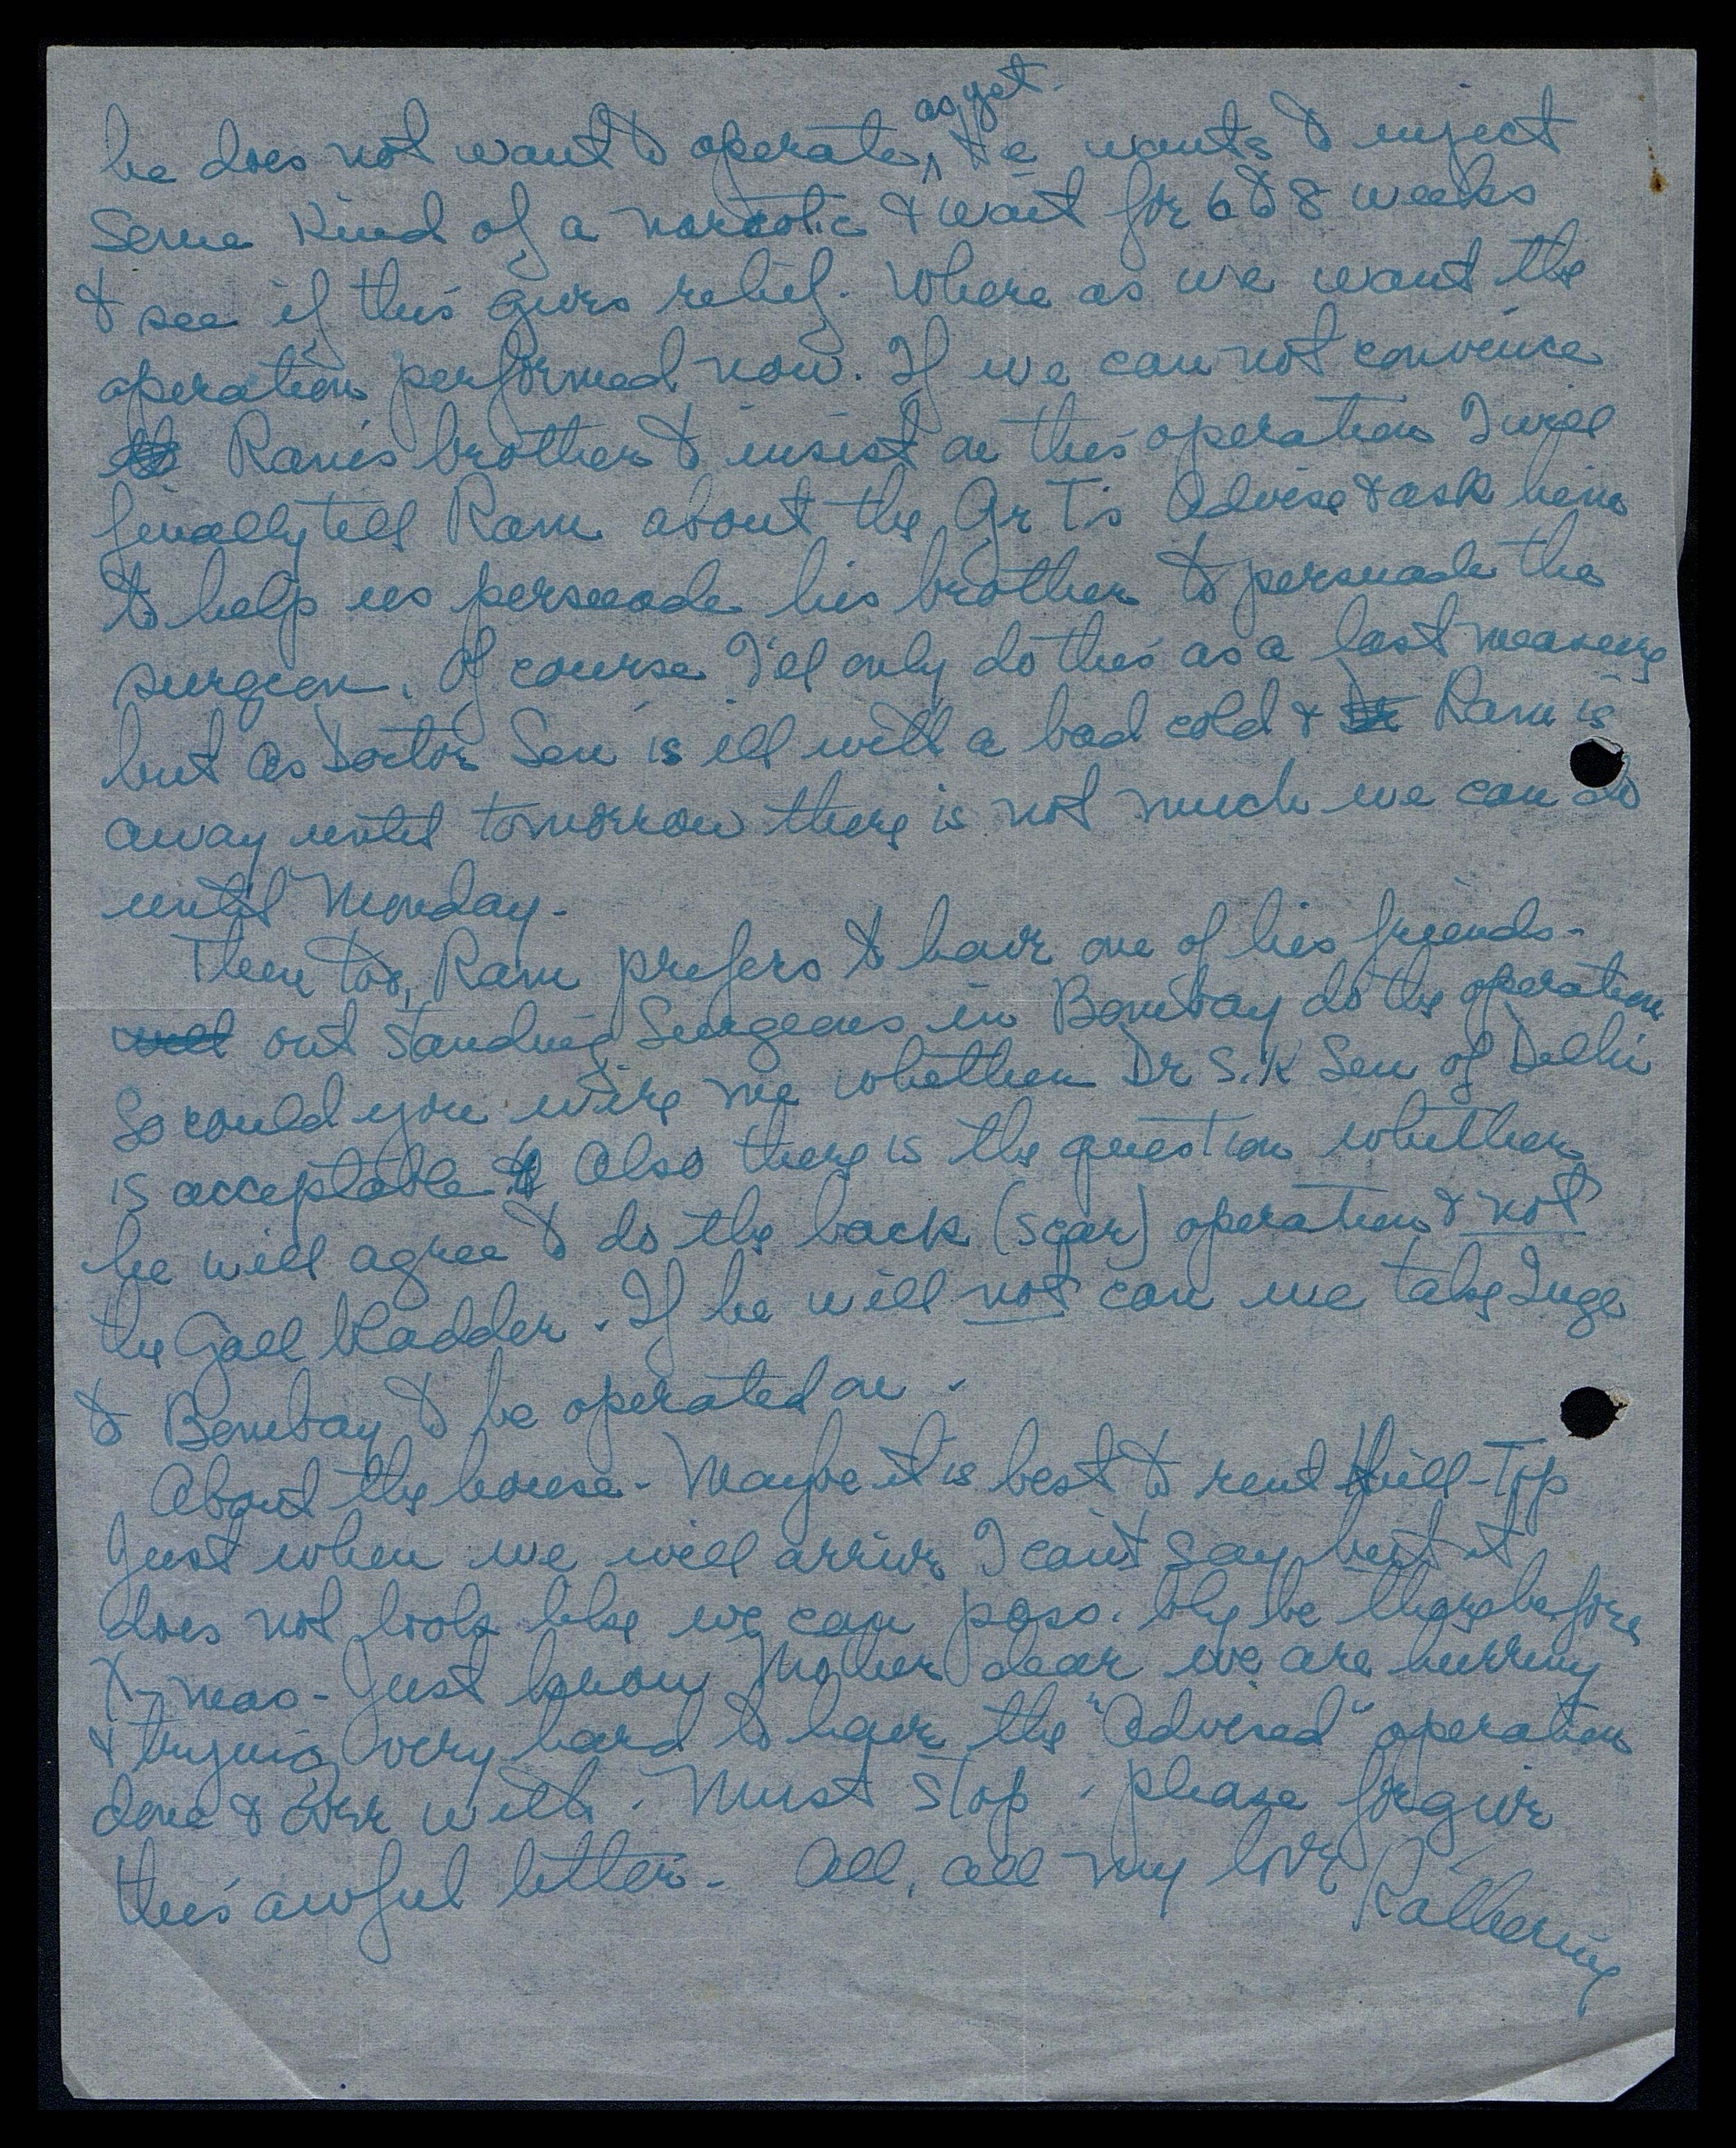 as yet.
he does not want to operate, He wants to inject
some kind of a narcotic & wait for 6 to 8 weeks
& see if this gives relief. Where as we want the
operation performed now. If we can not convince
Ram's brother to insist on this operation I will
finally tell Ram about the Gr T's Advise & ask him
to help us persuade his brother to persuade the
surgeon. Of course I'll only do this as a last measure
but as Doctor Sen is ill with a bad cold & Ram is
away until tomorrow there is not much we can do
until Monday.
Then too, Ram prefers to have one of his friends-
out standing Surgeons in Bombay do the operation
So could you wire me whether Dr S.K Sen of Delhi
is acceptable Also there is the question whether
he will agree to do the back (scar) operation & not
the Gall bladder. If he will not can we take Inge
to Bombay to be operated on.
About the house - Maybe it is best to rent Hill-Top
Just when we will arrive I can't say but it
does not look like we can poss. bly be there before
X-mas - Just know Mother dear we are hurrying
& trying very hard to have the "Advised" operation
done & over with. Must stop. please forgive
this awful letter - All, all my love Katherine